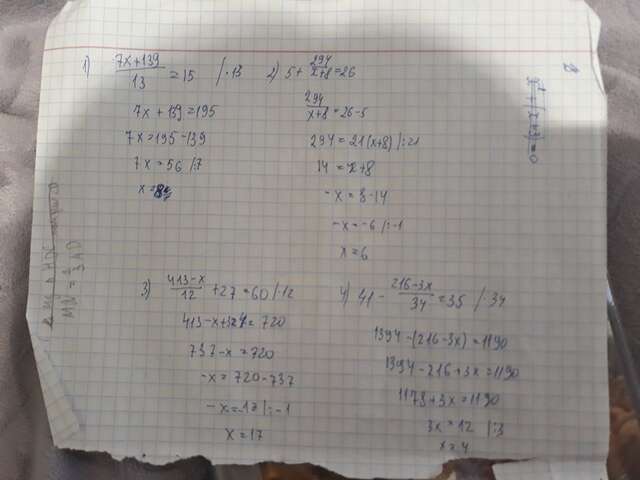 1) 7x+139/13 = 15 /·13
7x + 139 = 195
7x = 195 - 139
7x = 56 /:7
x = 8
2) 5 + 294/x+8 = 26
294/x+8 = 26-5
294 = 21(x+8) /:21
14 = x+8
-x = 8-14
-x = -6 /:-1
x = 6
3) 413-x/12 + 27 = 60 /·12
413-x+324 = 720
737-x = 720
-x = 720-737
-x = -17 /:-1
x = 17
4) 41 - 216-3x/34 = 35 /·34
1394-(216-3x) = 1190
1394-216+3x = 1190
1178+3x = 1190
3x = 12 /:3
x = 4